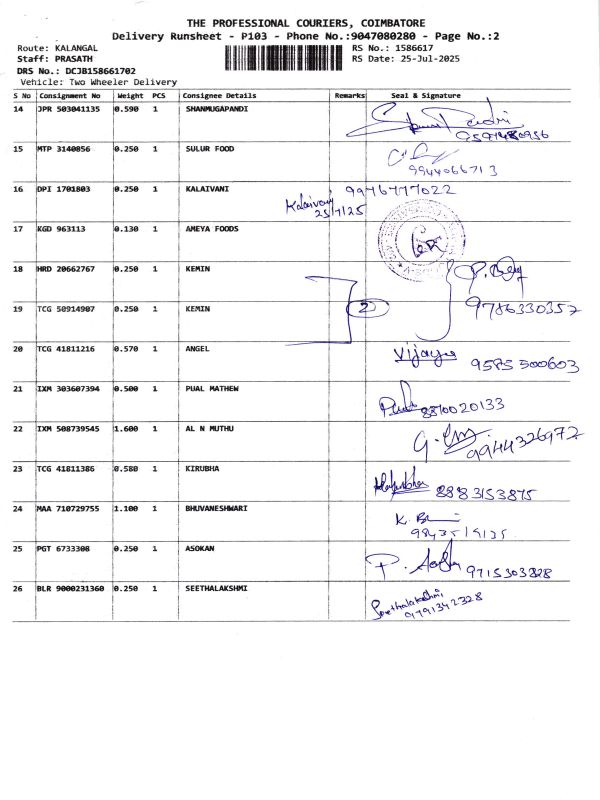 THE PROFESSIONAL COURIERS, COIMBATORE
Delivery Runsheet - P103 - Phone No.:9047080280 - Page No.:2
Route: KALANGAL RS No.: 1586617
Staff: PRASATH RS Date: 25-Jul-2025
DRS No.: DCJB158661702
Vehicle: Two Wheeler Delivery
S No Consignment No Weight PCS Consignee Details Remarks Seal & Signature
14 JPR 503041135 0.590 1 SHANMUGAPANDI
15 MTP 3140856 0.250 1 SULUR FOOD
9944066713
16 DPI 1701803 0.250 1 KALAIVANI 9976777022
Kalaivani
25/7/25
17 KGD 963113 0.130 1 AMEYA FOODS
18 HRD 20662767 0.250 1 KEMIN
19 TCG 50914907 0.250 1 KEMIN 2 9786330357
20 TCG 41811216 0.570 1 ANGEL Vijaya 9585500603
21 IXM 303607394 0.500 1 PUAL MATHEW
8870020133
22 IXM 508739545 1.600 1 AL N MUTHU
9944326972
23 TCG 41811386 0.580 1 KIRUBHA 8883153875
24 MAA 710729755 1.100 1 BHUVANESHWARI
25 PGT 6733308 0.250 1 ASOKAN 9715303828
26 BLR 9000231360 0.250 1 SEETHALAKSHMI Seethalakshmi
9791342328